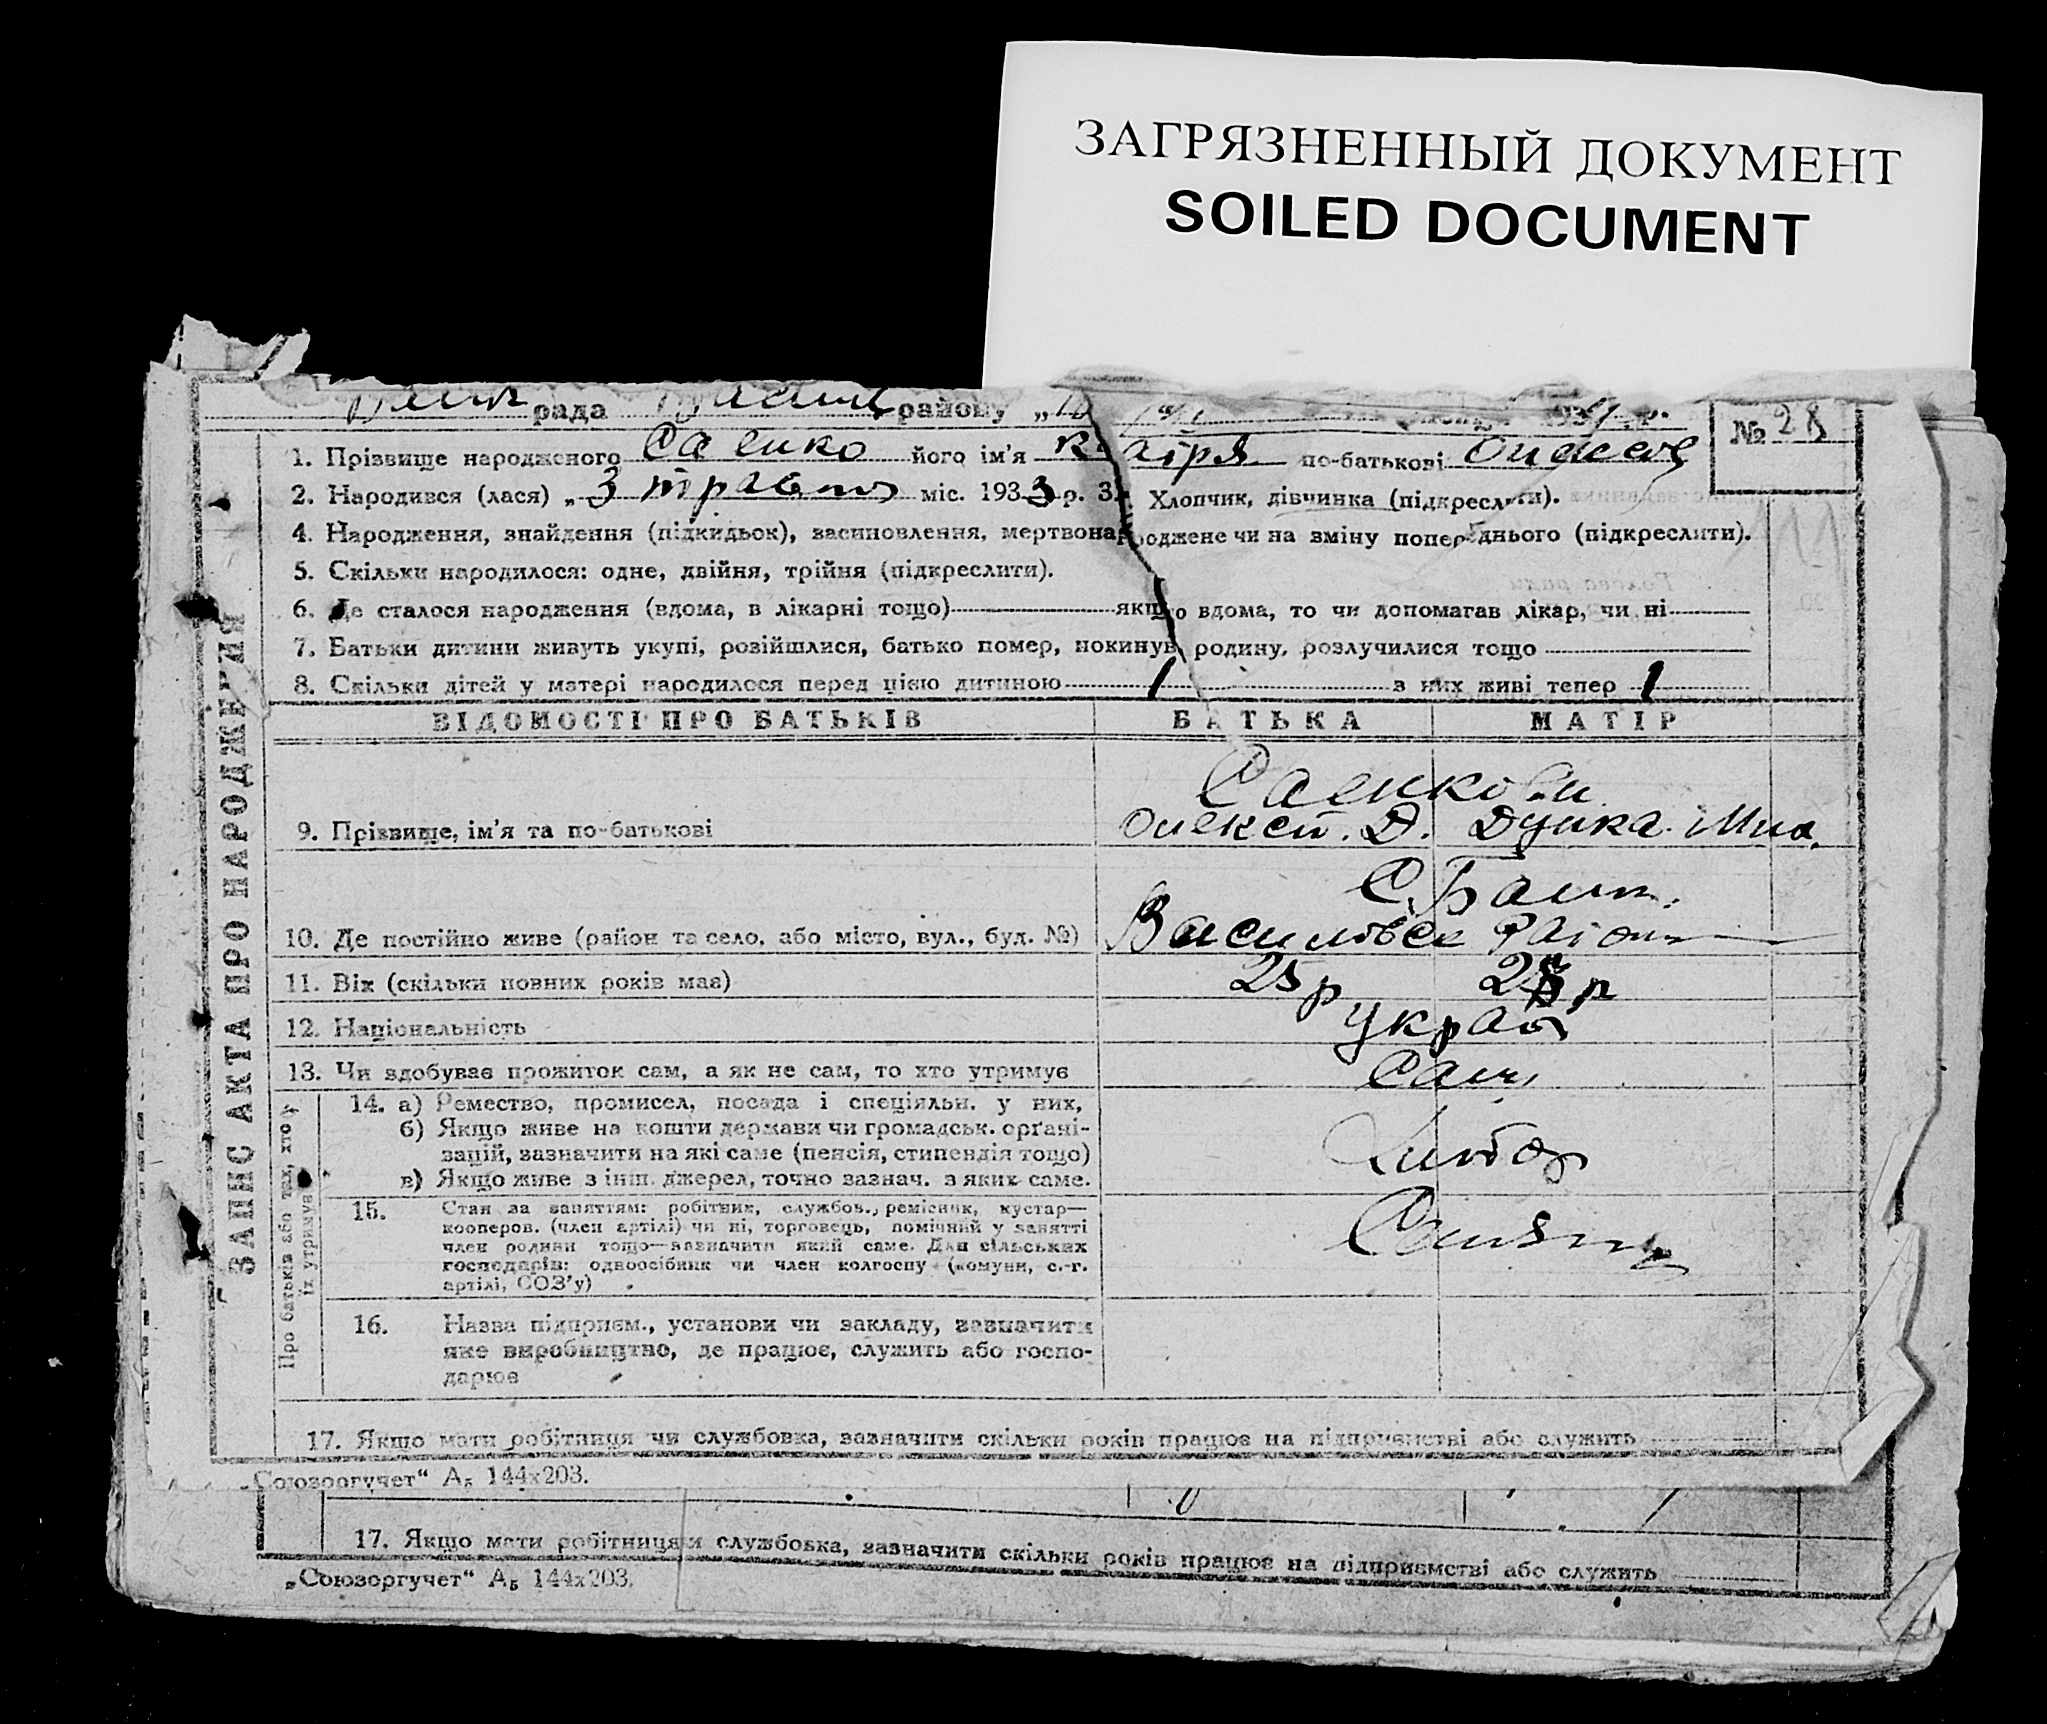 ЗАГРЯЗНЕННЫЙ ДОКУМЕНТ
SOILED DOCUMENT
рада району
№ 28
1. Прізвище народженого Саенко його ім'я по-батькові
2. Народився (лася) „3 травня міс. 1933 р. 3. Хлопчик, дівчинка (підкреслити).
4. Народження, знайдення (підкидьок), засиновлення, мертвонароджене чи на зміну попереднього (підкреслити).
5. Скільки народилося: одне, двійня, трійня (підкреслити).
6. Де сталося народження (вдома, в лікарні тощо) якщо вдома, то чи допомагав лікар, чи ні
7. Батьки дитини живуть укупі, розійшлися, батько помер, покинув родину, розлучилися тощо
8. Скільки дітей у матері народилося перед цією дитиною 1 з них живі тепер 1
ЗАПИС АКТА ПРО НАРОДЖЕННЯ
ВІДОМОСТІ ПРО БАТЬКІВ БАТЬКА МАТІР
Саенкови
9. Прізвище, ім'я та по-батькові Олексій. Д. Дунка
10. Де постійно живе (район та село, або місто, вул., буд. №) Василівск Район
11. Вік (скільки повних років має) 25 р
12. Національність Украй
13. Чи здобуває прожиток сам, а як не сам, то хто утримує Сами
Про батьків або тих, хто їх утримує
14. а) Ремество, промисел, посада і спеціяльн. у них,
б) Якщо живе на кошти держави чи громадськ. орґані-
зацій, зазначити на які саме (пенсія, стипендія тощо)
в) Якщо живе з інш. джерел, точно зазнач. з яких саме.
15. Стан за заняттям: робітник, службов., ремісник, кустар—
кооперов. (член артілі) чи ні, торговець, помічний у занятті
член родини тощо—зазначити який саме. Для сільських
господарів: одноосібник чи член колгоспу (комуни, с.-г.
артілі, СОЗ'у)
16. Назва підприєм., установи чи закладу, зазначити
яке виробництво, де працює, служить або госпо-
дарює
17. Якщо мати робітниця чи службовка, зазначити скільки років працює на підприємстві або служить
„Союзоргучет“ А₅ 144х203.
17. Якщо мати робітниця чи службовка, зазначити скільки років працює на підприємстві або служить
„Союзоргучет“ А₅ 144х203.